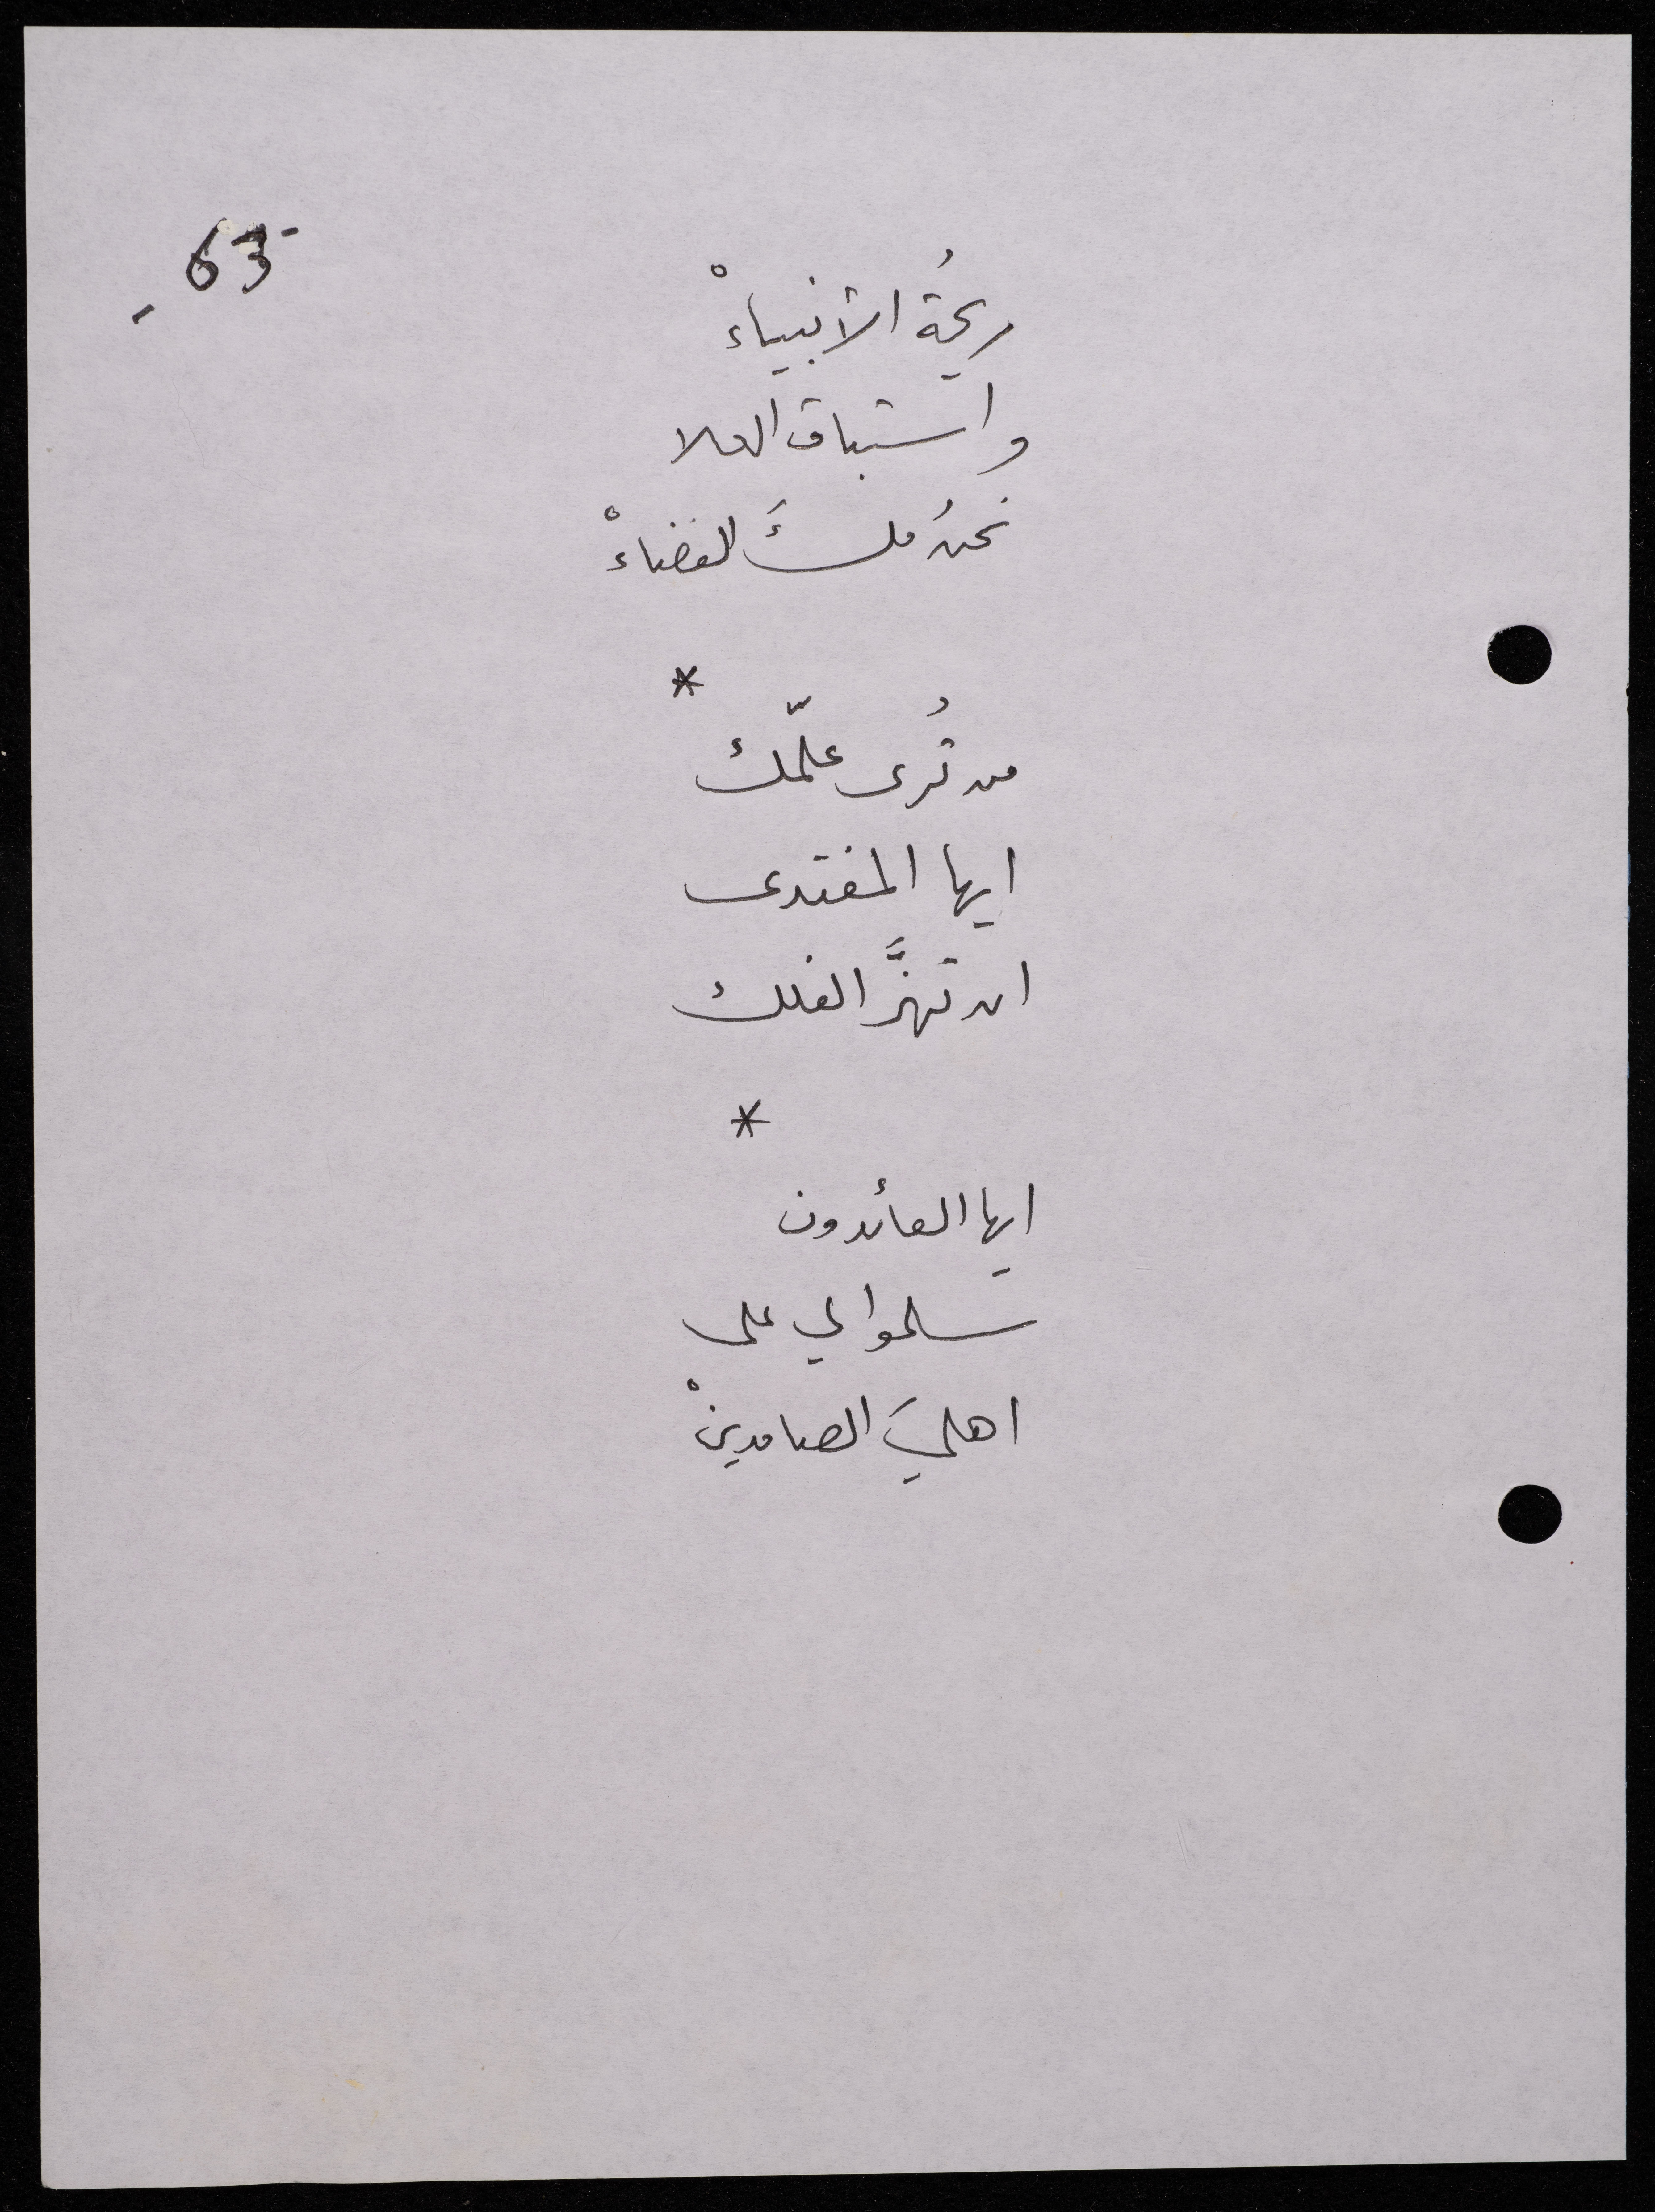 -63-
ريحُة الانبياءْ
واستباق العلا
نحنُ ملكَ الفضاءْ
*
من تُرى علّمك
ايها المفتدى
ان تهزَّ الفلك
*
ايها العائدون
سلموا لي على
اهليَ الصامدينْ